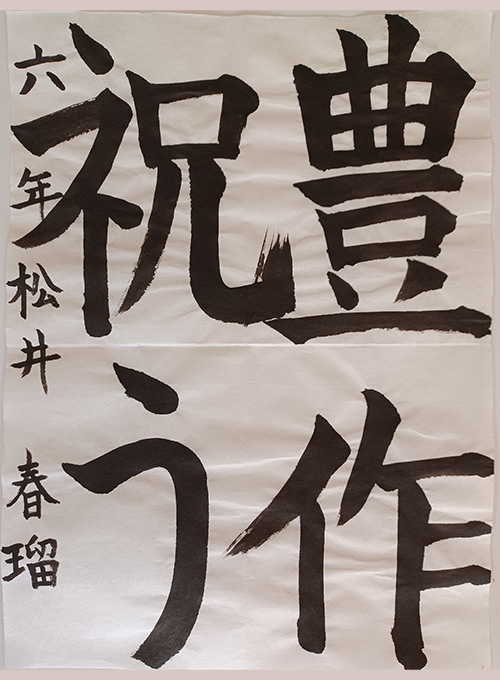 豊作
祝う
六年松井春瑠